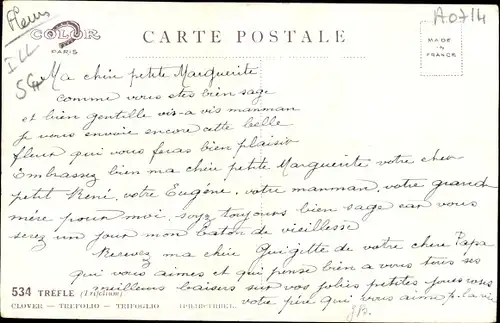 Fleurs
ILL
COLOR
PARIS
CARTE POSTALE
A0714
MADE
IN
FRANCE
Ma chère petite Marguerite
comme vous etes bien sage
et bien gentille vis-a vis manman
je vous envoie encore cette belle
fleur qui vous feras bien plaisir
Embrassez bien ma chère petite Marguerite votre cher
petit René, votre Eugène, votre manman, votre grand
mère pour moi, soyez toujours bien sage car vous
serez un jour mon baton de vieillesse
Recevez ma chère Guigitte de votre chere Papa
qui vous aimes et qui pense bien a vous tous ses
meilleurs baisers sur vos jolies petites joues roses
votre père qui vous aime p. la vie
534 TRÈFLE (Trifolium)
CLOVER — TREFOLIO — TRIFOGLIO